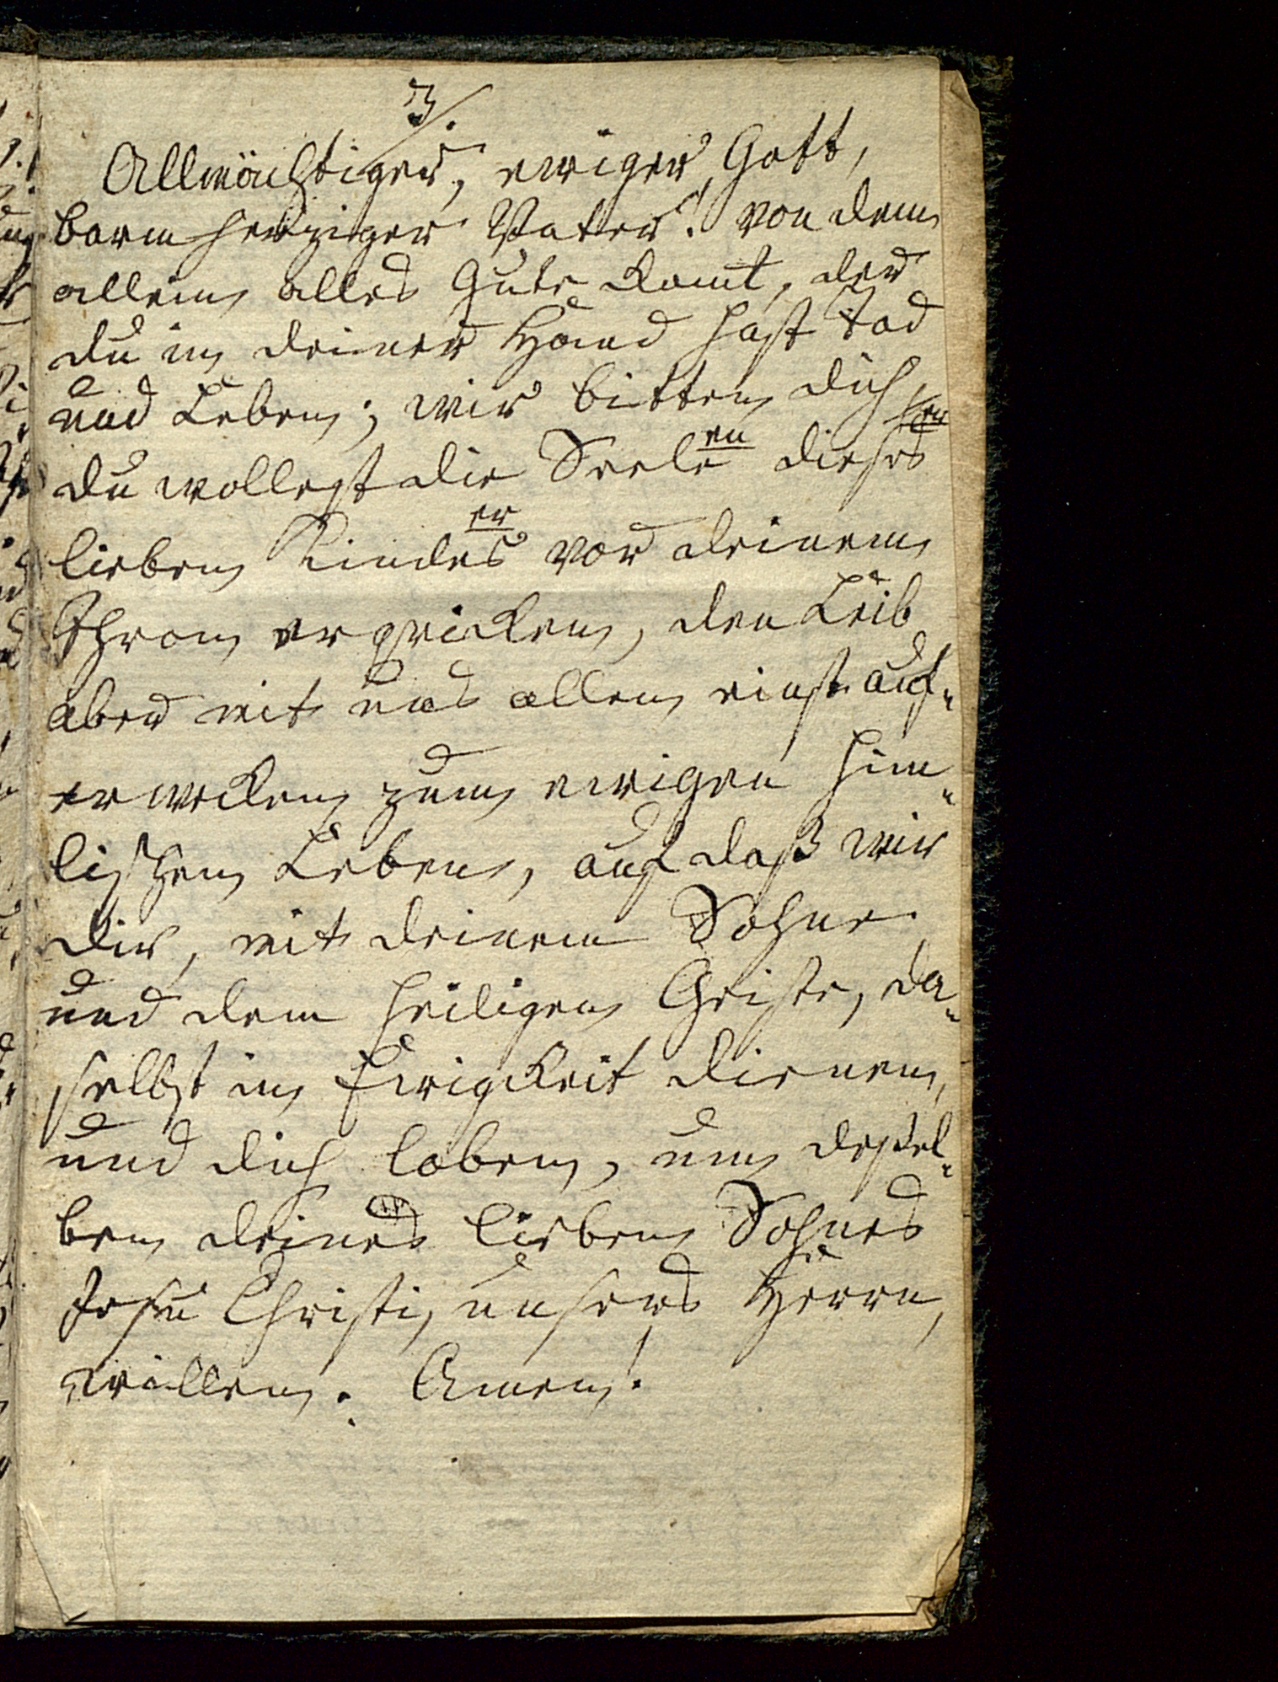 3/.
Allmächtiger, ewiger Gott,
barmherziger Vater! von dem
allein alles Gute komt, der
du in deiner Hand hast Tod
und Leben; wir bitten dich,
du wollest die Seele en dieses er
lieben Kindes er vor deinem
Thron erquicken, den Leib
aber mit uns allen einst auf-
erwecken zum ewigen him-
lischen Leben, auf daß wir
dir, mit deinem Sohne
und dem heiligen Geiste, da-
selbst in Ewigkeit dienen,
und dich loben, um dessel-
ben deines lieben Sohnes
Jesu Christi, unsers Herrn,
willen. Amen!